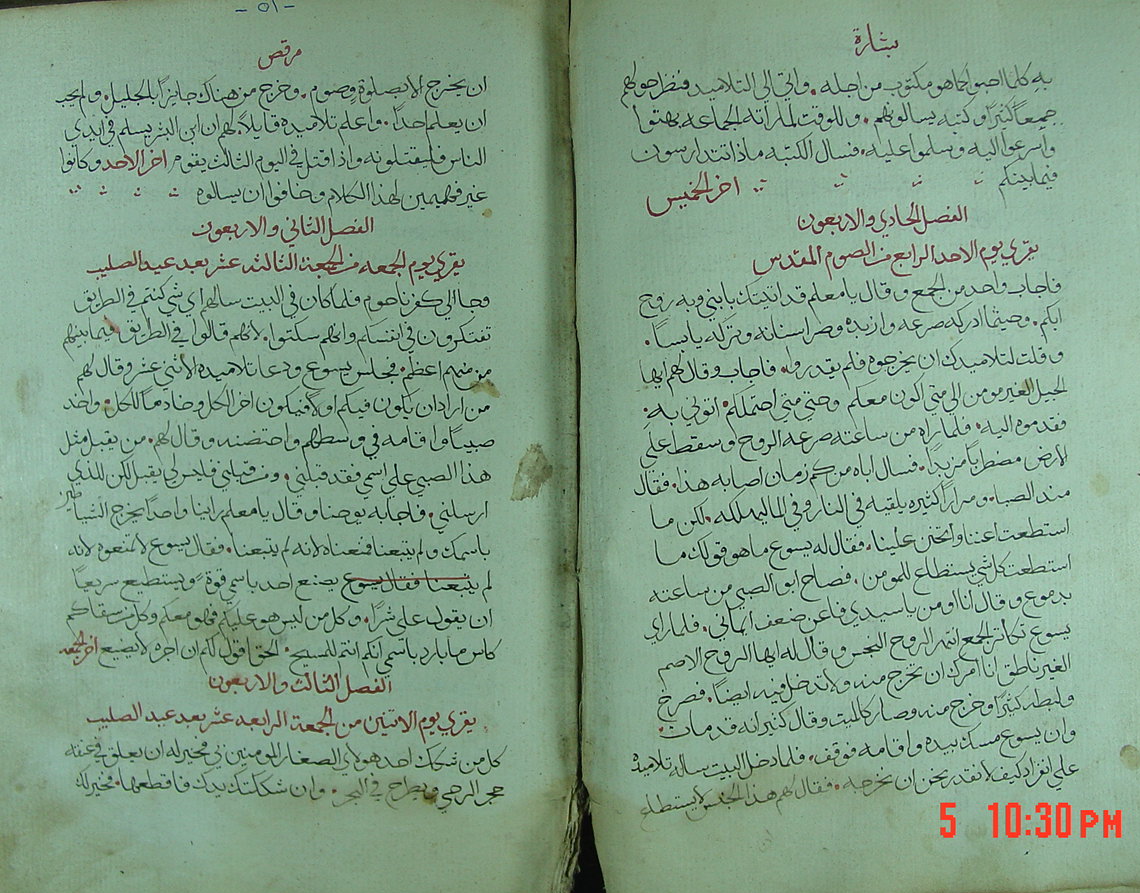 بشارة
به كلما احبوا كما هو مكتوب من اجله. واتي الي التلاميذ فنظر حولهم
جميعاً كثيراً وكتبه يسالونهم. وللوقت لما راته الجماعه بهتوا
واسرعوا اليه وسلموا عليه. فسال الكتبه ماذا تتدارسون
فيما بينكم اخر الخميس
الفصل الحادي والاربعون
يقري يوم الاحد الرابع من الصوم المقدس
فاجاب واحد من الجمع وقال يا معلم قد اتيتك بابني وبه روح
ابكم. وحيثما ادركه صرعه وازبده وصر اسنانه وتركه يابساً.
وقلت لتلاميدك ان يخرجوه فلم يقدروا. فاجاب وقال لهم ايها
الجيل الغير مومن الي متي اكون معكم وحتي متي احتملكم. اتوني به.
فقدموه اليه. فلما راه من ساعته صرعه الروح وسقط علي
الارض مضطرباً مزبداً. فسال اباه من كم زمان اصابه هذا. فقال
مند الصبا. ومراراً كثيره يلقيه في النار وفي الما ليهلكه. لكن ما
استطعت اعننا وتحنن علينا. فقال له يسوع ما هو قولك ما
استطعت كل شي يستطاع للمومن. فصاح ابو الصبي من ساعته
بدموع وقال انا اومن ياسيدي فاعن ضعف ايماني. فلما راي
يسوع تكاثر الجمع انتهر الروح النجس وقال له ايها الروح الاصم
الغير ناطق انا امرك ان تخرج منه ولا تدخل فيه ايضاً. فصرخ
ولبطه كثيراً وخرج منه وصار كالميت وقال كثير انه قد مات.
وان يسوع مسك بيده واقامه فوقف. فلما دخل البيت ساله تلاميده
علي انفراد كيف لا نقدر نحن ان نخرجه. فقال لهم هذا الجنس لا يستطاع
- ٥١ -
مرقص
ان يخرج الا بصلوة وصوم. وخرج من هناك جايزاً بالجليل. ولم يحب
ان يعلم احداً. واعلم تلاميده قايلاً لهم ان ابن البشر يسلم في ايدي
الناس فيقتلونه واذا قتل في اليوم الثالث يقوم اخر الاحد وكانوا
غير فهيمين لهذا الكلام وخافوا ان يسالوه
الفصل الثاني والاربعون
يقري يوم الجمعه من الجمعة الثالثه عشر بعد عيد الصليب
وجا الي كفرناحوم فلما كان في البيت سالهم اي شي كنتم في الطريق
تفتكرون في انفسكم وانهم سكتوا. لانهم قالوا في الطريق فيما بينهم
من منهم اعظم. فجلس يسوع ودعا تلاميده الاثني عشر وقال لهم
من اراد ان يكون فيكم اولاً فيكون اخر الكل وخادماً للكل. واخد
صبياً واقامه في وسطهم واحتضنه وقال لهم. من يقبل مثل
هذا الصبي علي اسمي فقد قبلني. ومن قبلني فليس لي يقبل لكن للذي
ارسلني. فاجابه يوحنا وقال يا معلم راينا واحداً يخرج الشياطين
باسمك ولم يتبعنا فمنعناه لانه لم يتبعنا. فقال يسوع لا تمنعوه لانه
لم يتبعنا فقال يسوع يصنع احد باسمي قوة ويستطيع سريعاً
ان يقول علي شراً. وكل من ليس هو عليكم فهو معكم وكل من سقاكم
كاس ما بارد باسمي انكم انتم للمسيح. الحق اقول لكم ان اجره لا يضيع اخر الجمعه
الفصل الثالث والاربعون
يقري يوم الاتنين من الجمعة الرابعه عشر بعد عيد الصليب
كل من شكك احد هولاي الصغار المومنين بي فخير له ان يعلق في عنقه
حجر الرحي ويطرح في البحر. وان شككتك يدك فاقطعها. فخير لك
5 10:30 PM